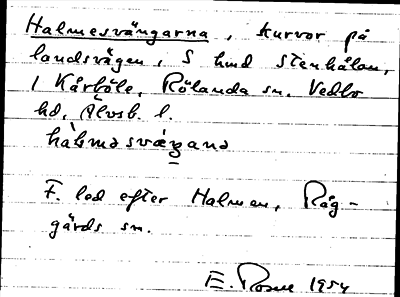 Halmesvängarna, kurvor på
landsvägen, S hmd Stenhålan,
i Kårböle, Rölanda sn. Vedbo
hd, Älvsb. l.
hàlməsvæŋanə
F. led efter Halmen, Råg-
gärds sn.
E. 1954